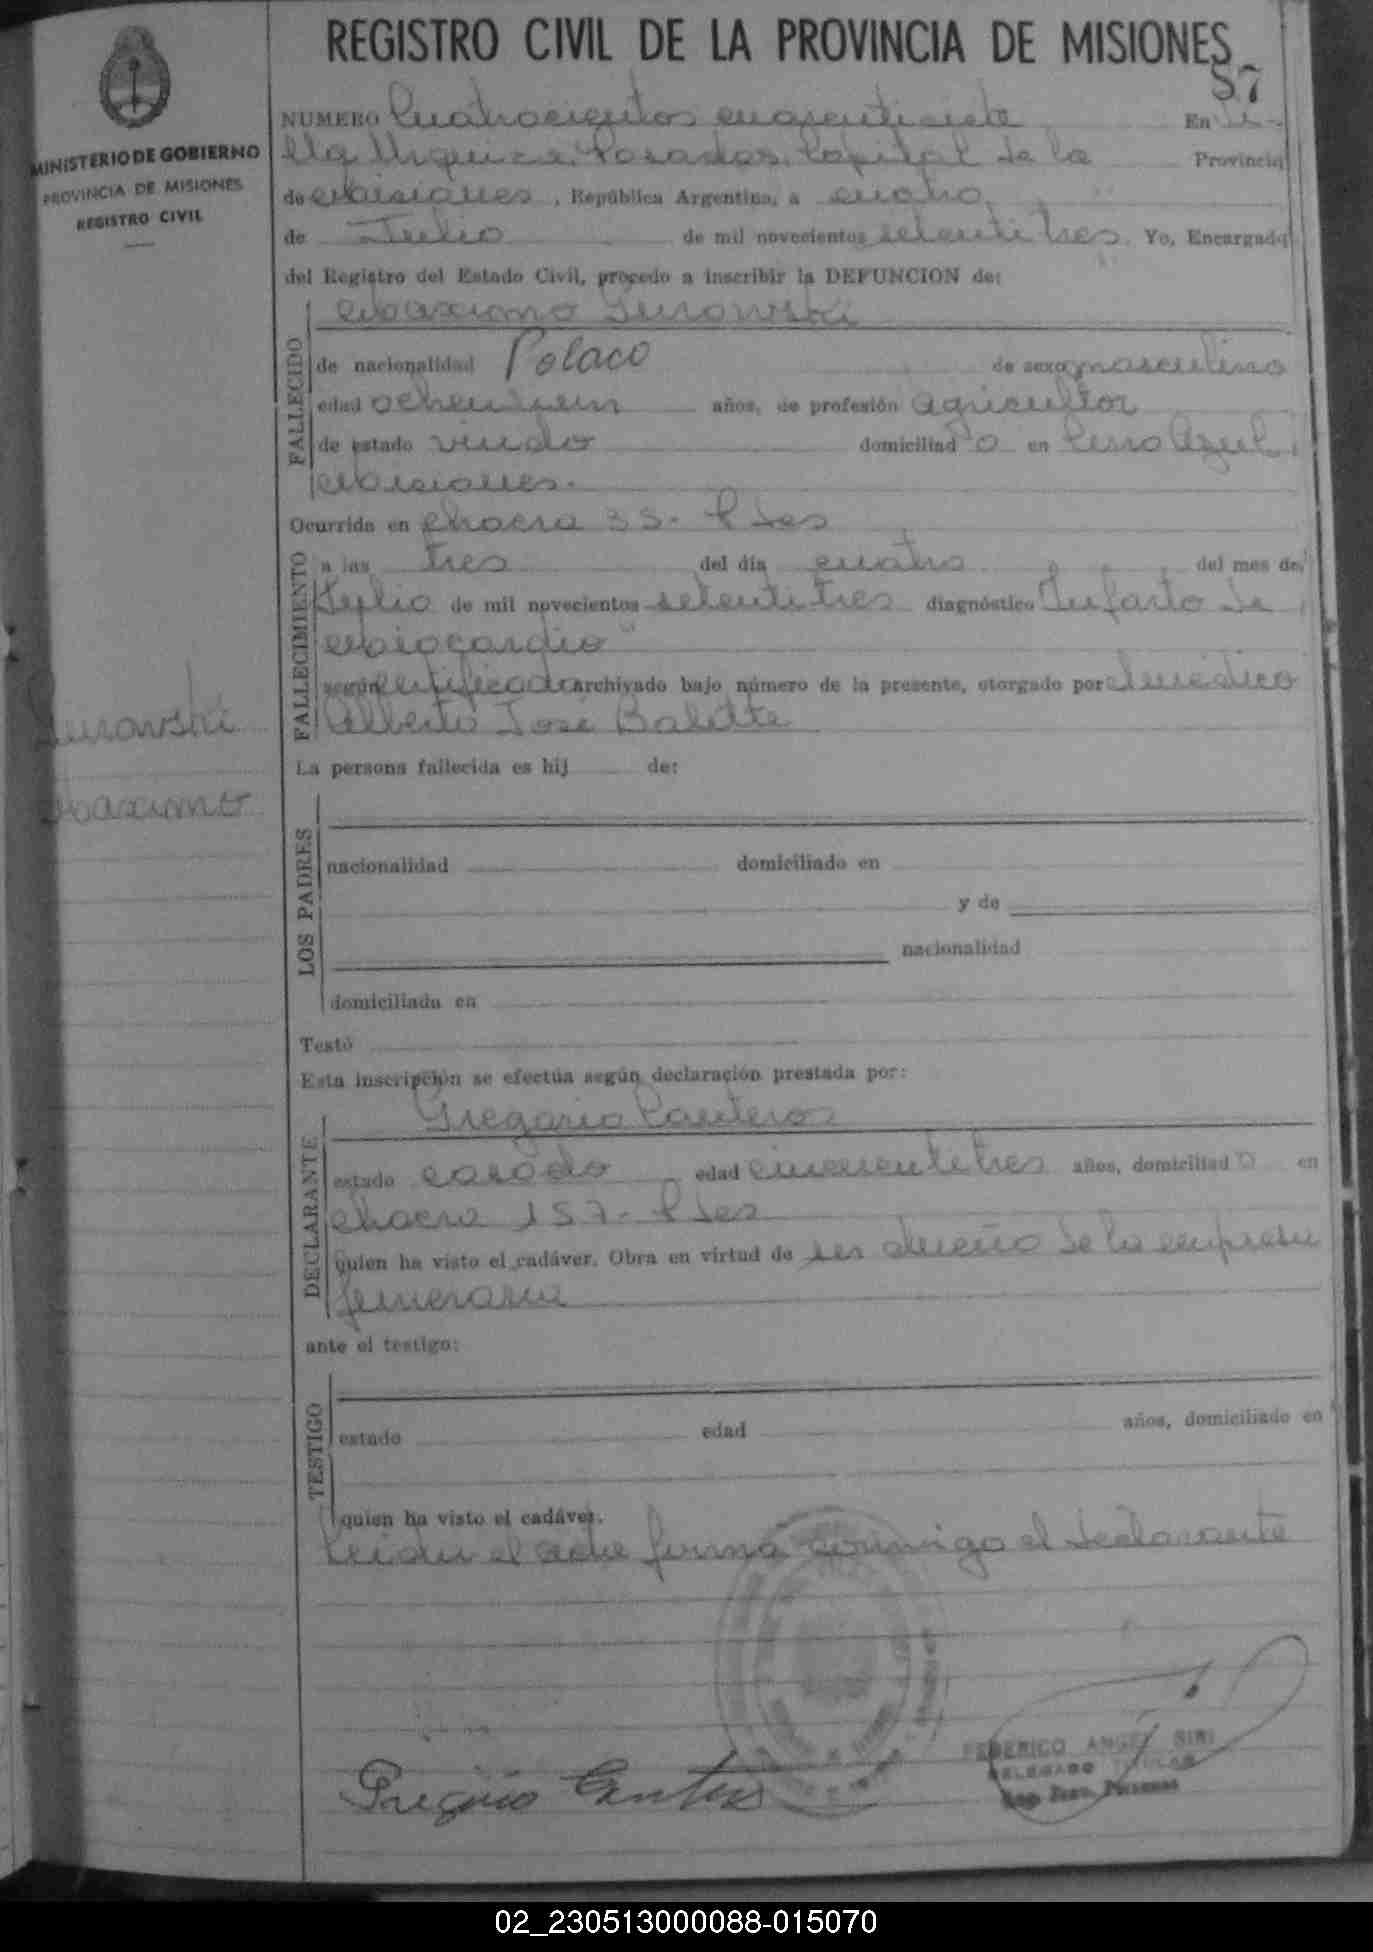 REGISTRO CIVIL DE LA PROVINCIA DE MISIONES
87
MINISTERIO DE GOBIERNO
PROVINCIA DE MISIONES
REGISTRO CIVIL
NUMERO Cuatrocientos cuarentisiete En
Villa Urquiza, Posadas, Capital de la Provincia
de Misiones, República Argentina, a cuatro
de Julio de mil novecientos setentitres. Yo, Encargado
del Registro del Estado Civil, procedo a inscribir la DEFUNCION de:
FALLECIDO
Maximo
de nacionalidad Polaco de sexo masculino
edad ochentiun años, de profesión agricultor
de estado viudo domiciliado en Cerro Azul,
Misiones.
Ocurrida en chacra 35. Pdas
FALLECIMIENTO
a las tres del día cuatro del mes de
Julio de mil novecientos setentitres diagnóstico Infarto de
Miocardio"
según certificado archivado bajo número de la presente, otorgado por el médico
Alberto José
Maximo
La persona fallecida es hij de:
LOS PADRES
nacionalidad domiciliado en
y de
nacionalidad
domiciliada en
Testó
Esta inscripción se efectúa según declaración prestada por:
DECLARANTE
Gregorio Canteros
estado casado edad cincuentitres años, domiciliado en
chacra 157. Pdas
quien ha visto el cadáver. Obra en virtud de ser dueño de la empresa
funeraria
ante el testigo:
TESTIGO
estado edad años, domiciliado en
quien ha visto el cadáver.
Leida el acta firma conmigo el declarante
Gregorio Canteros
FEDERICO ANGEL SIRI
DELEGADO TITULAR
02_230513000088-015070